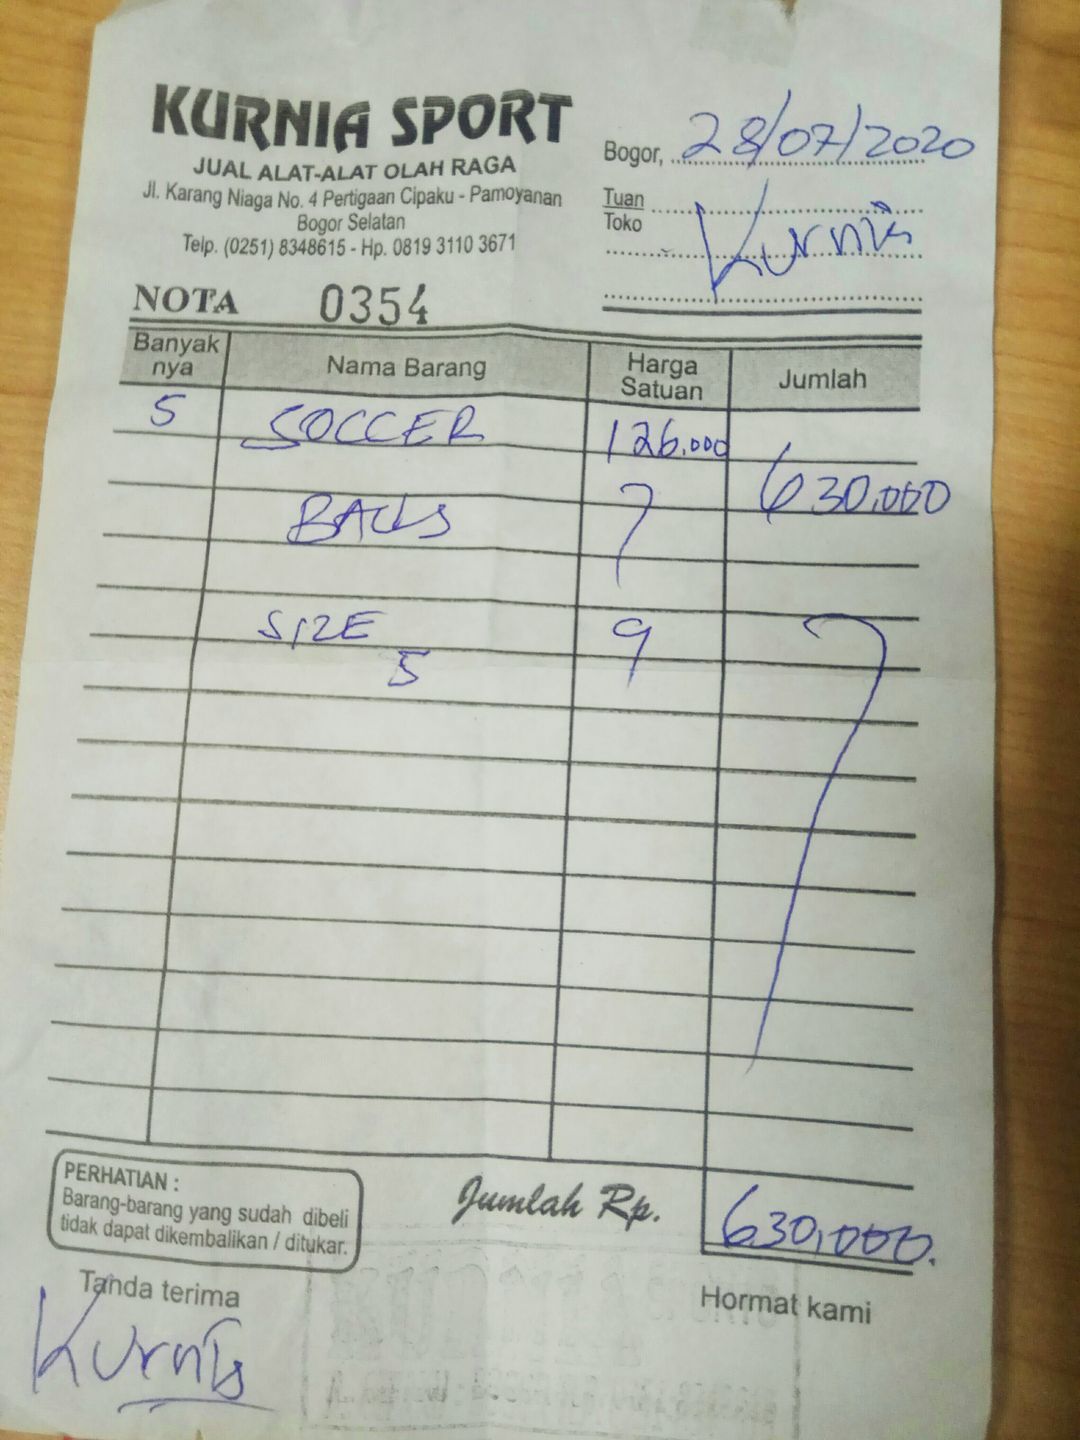 KURNIA SPORT
JUAL ALAT-ALAT OLAH RAGA
Jl. Karang Niaga No. 4 Pertigaan Cipaku - Pamoyanan
Bogor Selatan
Telp. (0251) 8348615 - Hp. 0819 3110 3671
Bogor, 28/07/2020
Tuan
Toko
Kurnia
NOTA 0354
Banyak nya Nama Barang Harga Satuan Jumlah
5 SOCCER 126.000
630,000
BALLS
SIZE
5
PERHATIAN :
Barang-barang yang sudah dibeli
tidak dapat dikembalikan / ditukar.
Jumlah Rp. 630,000.
Tanda terima
Hormat kami